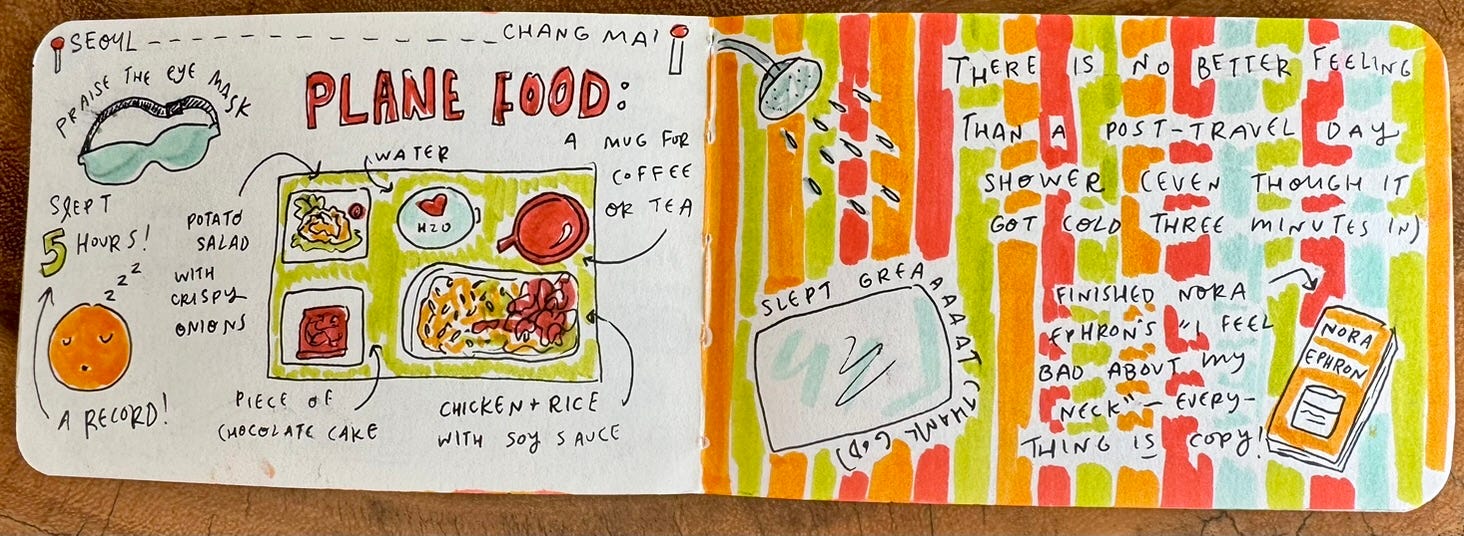 SEOUL – – – – – – – – – – – CHANG MAI
PRAISE THE EYE MASK
PLANE FOOD:
SLEPT
5 HOURS!
zzz
A RECORD!
POTATO
SALAD
WITH
CRISPY
ONIONS
WATER
A MUG FOR
COFFEE
OR TEA
H2O
PIECE OF
CHOCOLATE CAKE
CHICKEN + RICE
WITH SOY SAUCE
THERE IS NO BETTER FEELING
THAN A POST-TRAVEL DAY
SHOWER (EVEN THOUGH IT
GOT COLD THREE MINUTES IN)
SLEPT GREAAAAAT (THANK GOD)
FINISHED NORA
EPHRON'S "I FEEL
BAD ABOUT MY
NECK" — EVERY-
THING IS COPY!
NORA
EPHRON